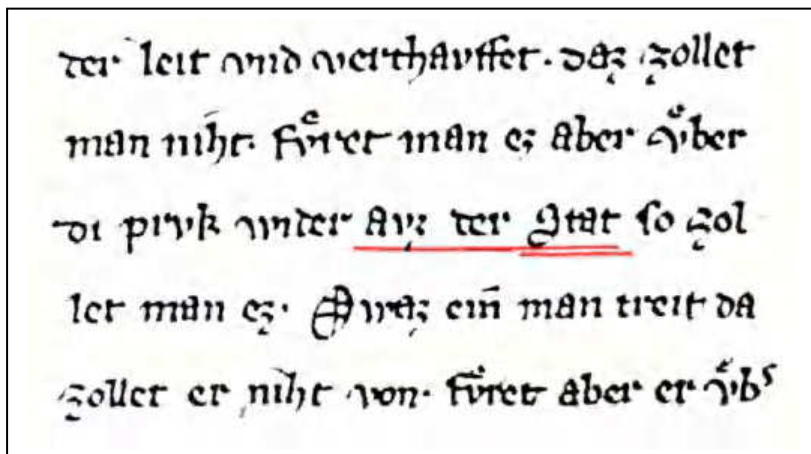 der leit vnd verchavffet. daz zollet
man niht. fvͤret man ez aber vͤber
di prvk wider avz der Stat so zol
let man ez. Swaz ein̄ man treit da
zollet er niht von. fvͤret aber er vͤbˢ